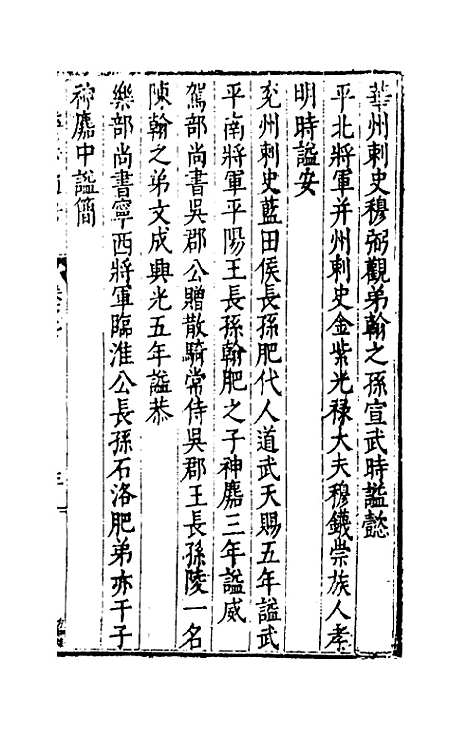 華州刺史穆弼觀弟翰之孫宣武時謚懿
平北將軍并州刺史金紫光祿大夫穆鑖崇族人孝
明時謚安
兖州刺史藍田侯長孫肥代人道武天賜五年謚武
平南將軍平陽王長孫翰肥之子神䴥三年謚威
駕部尚書吳郡公贈散騎常侍吳郡王長孫陵一名
陳翰之弟文成興光五年謚恭
樂部尚書寧西將軍臨淮公長孫石洛肥弟亦干子
神䴥中謚簡